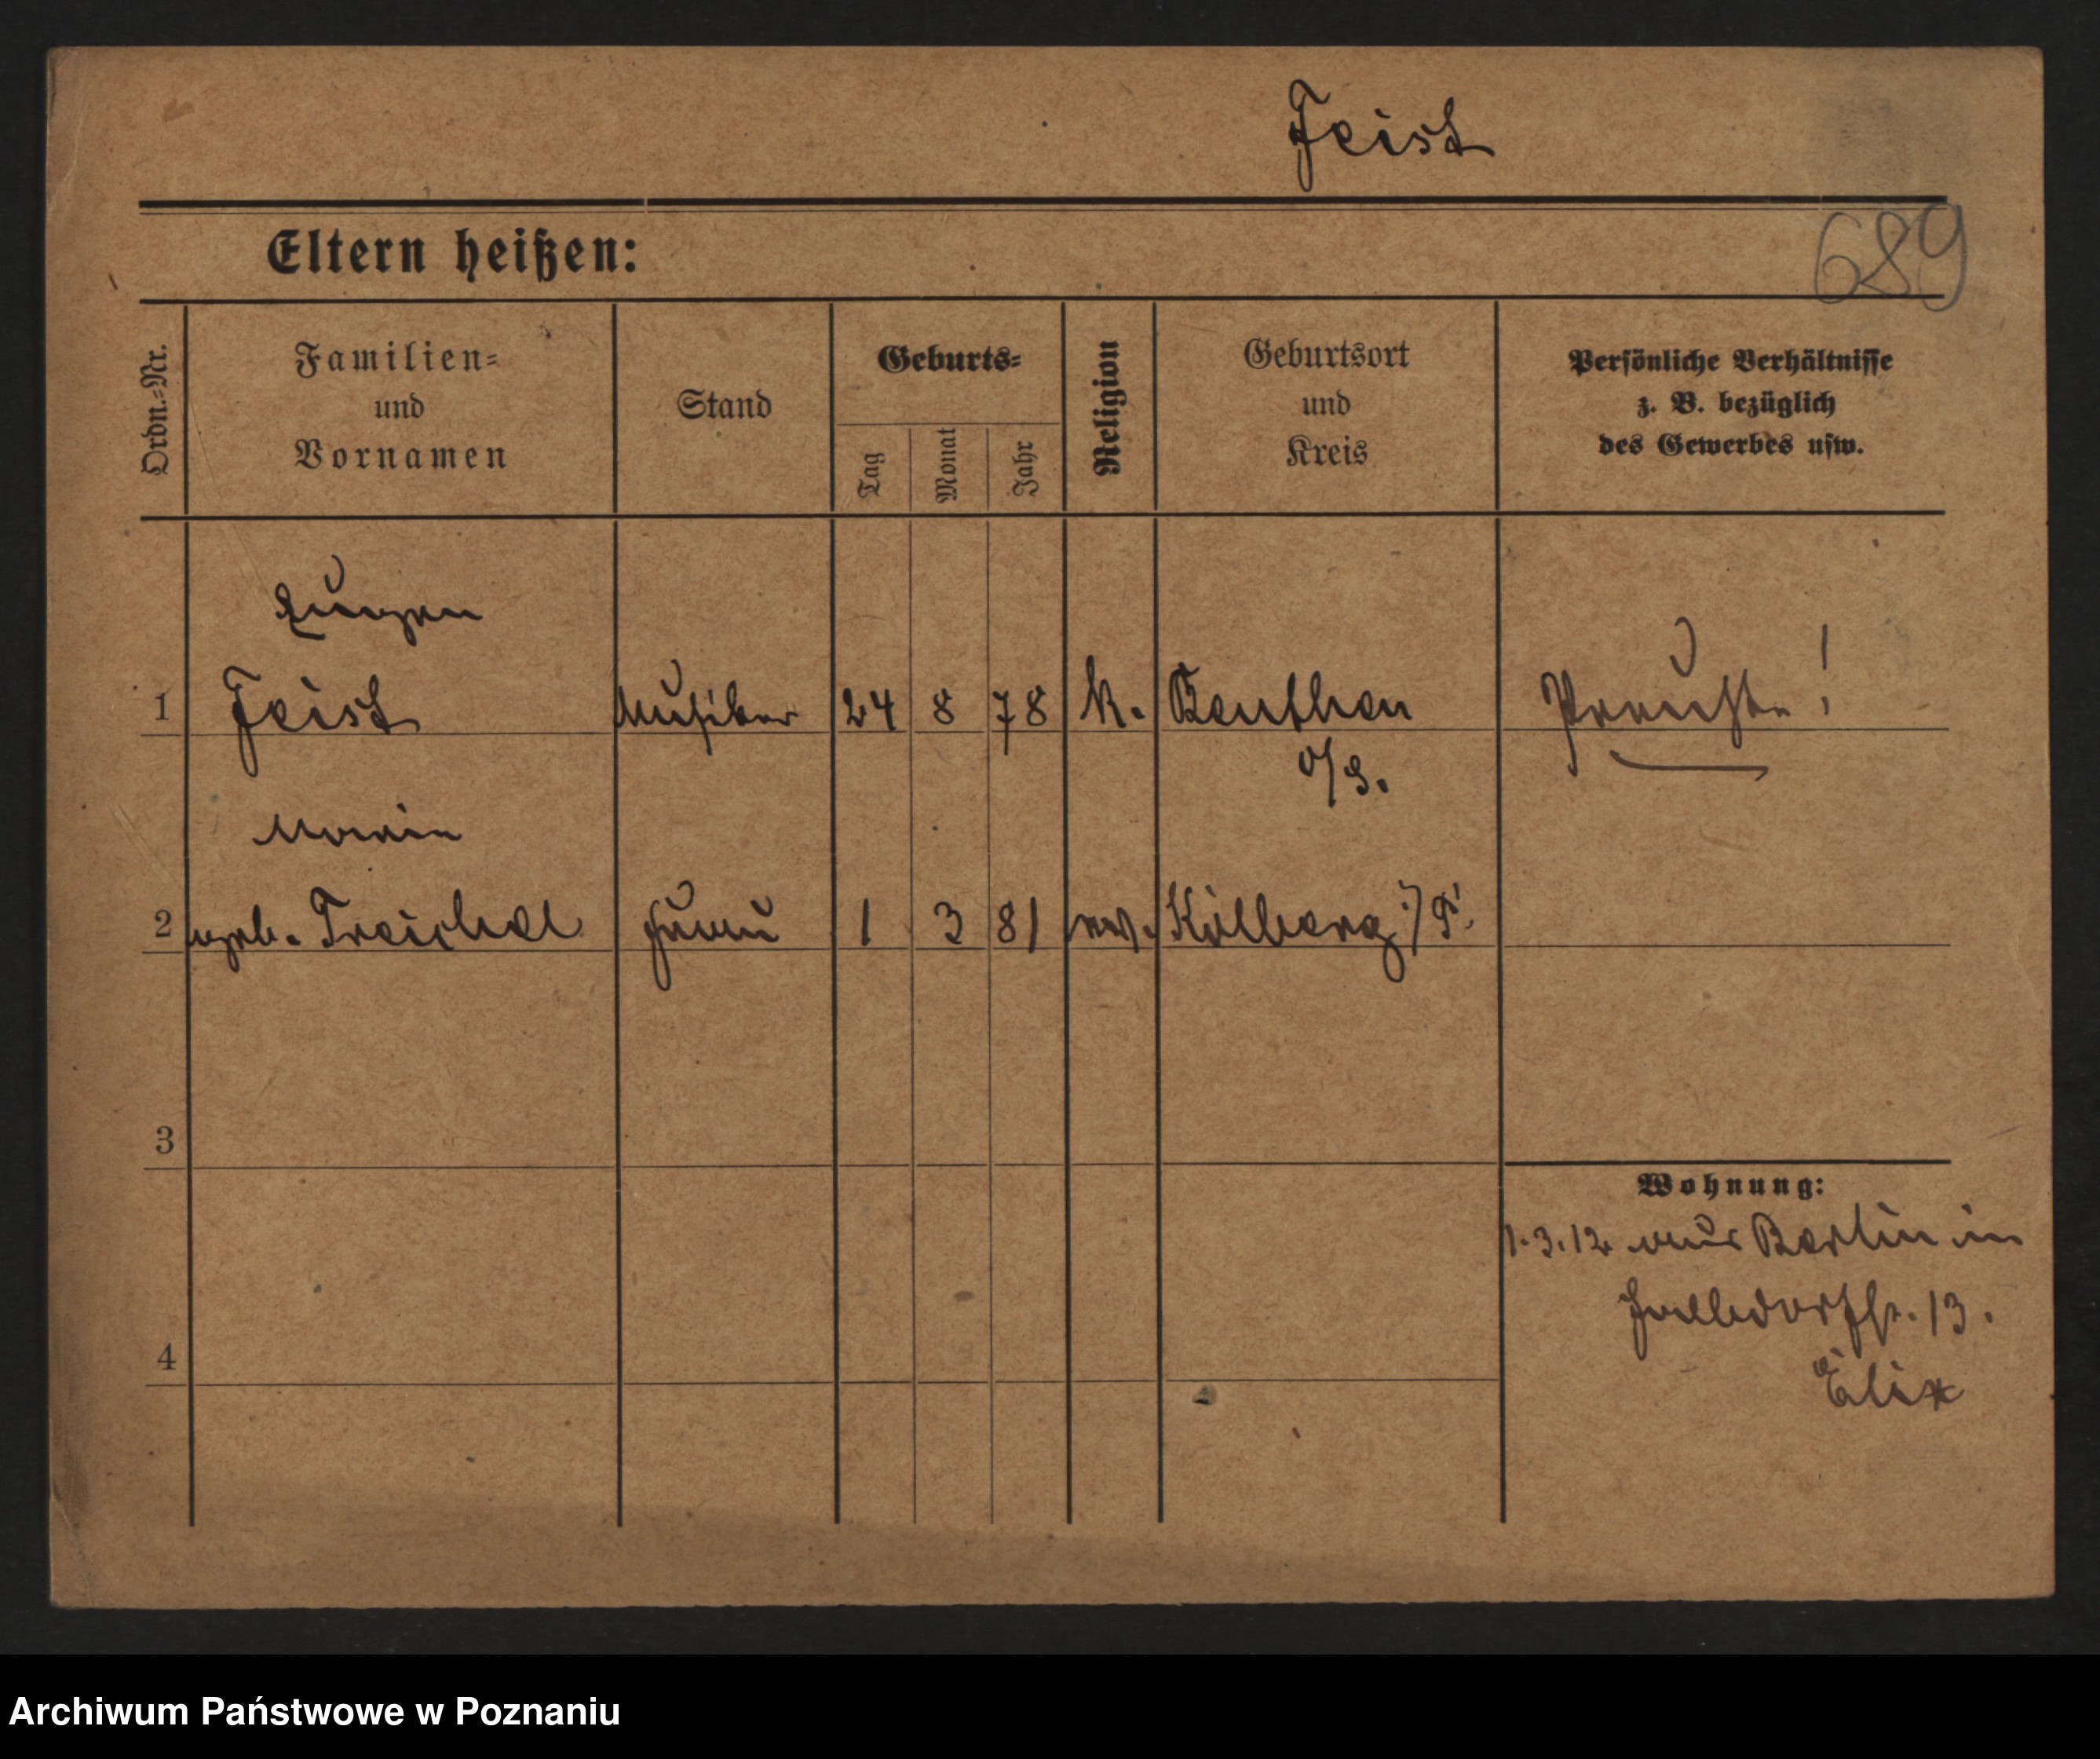 Feist
689
Eltern heißen:
Ordn.-Nr.
Familien-
und
Vornamen
Stand
Geburts-
Tag
Monat
Jahr
Religion
Geburtsort
und
Kreis
Persönliche Verhältnisse
z. B. bezüglich
des Gewerbes usw.
1
Feist
Musiker
24
8
78
k.
Beuthen
o/S.
Preuße !
Maria
2
geb. Treichel
Frau
1
3
81
ev.
Kolberg i/P.
3
4
Wohnung:
1.3.12 aus Berlin in
13.
Archiwum Państwowe w Poznaniu